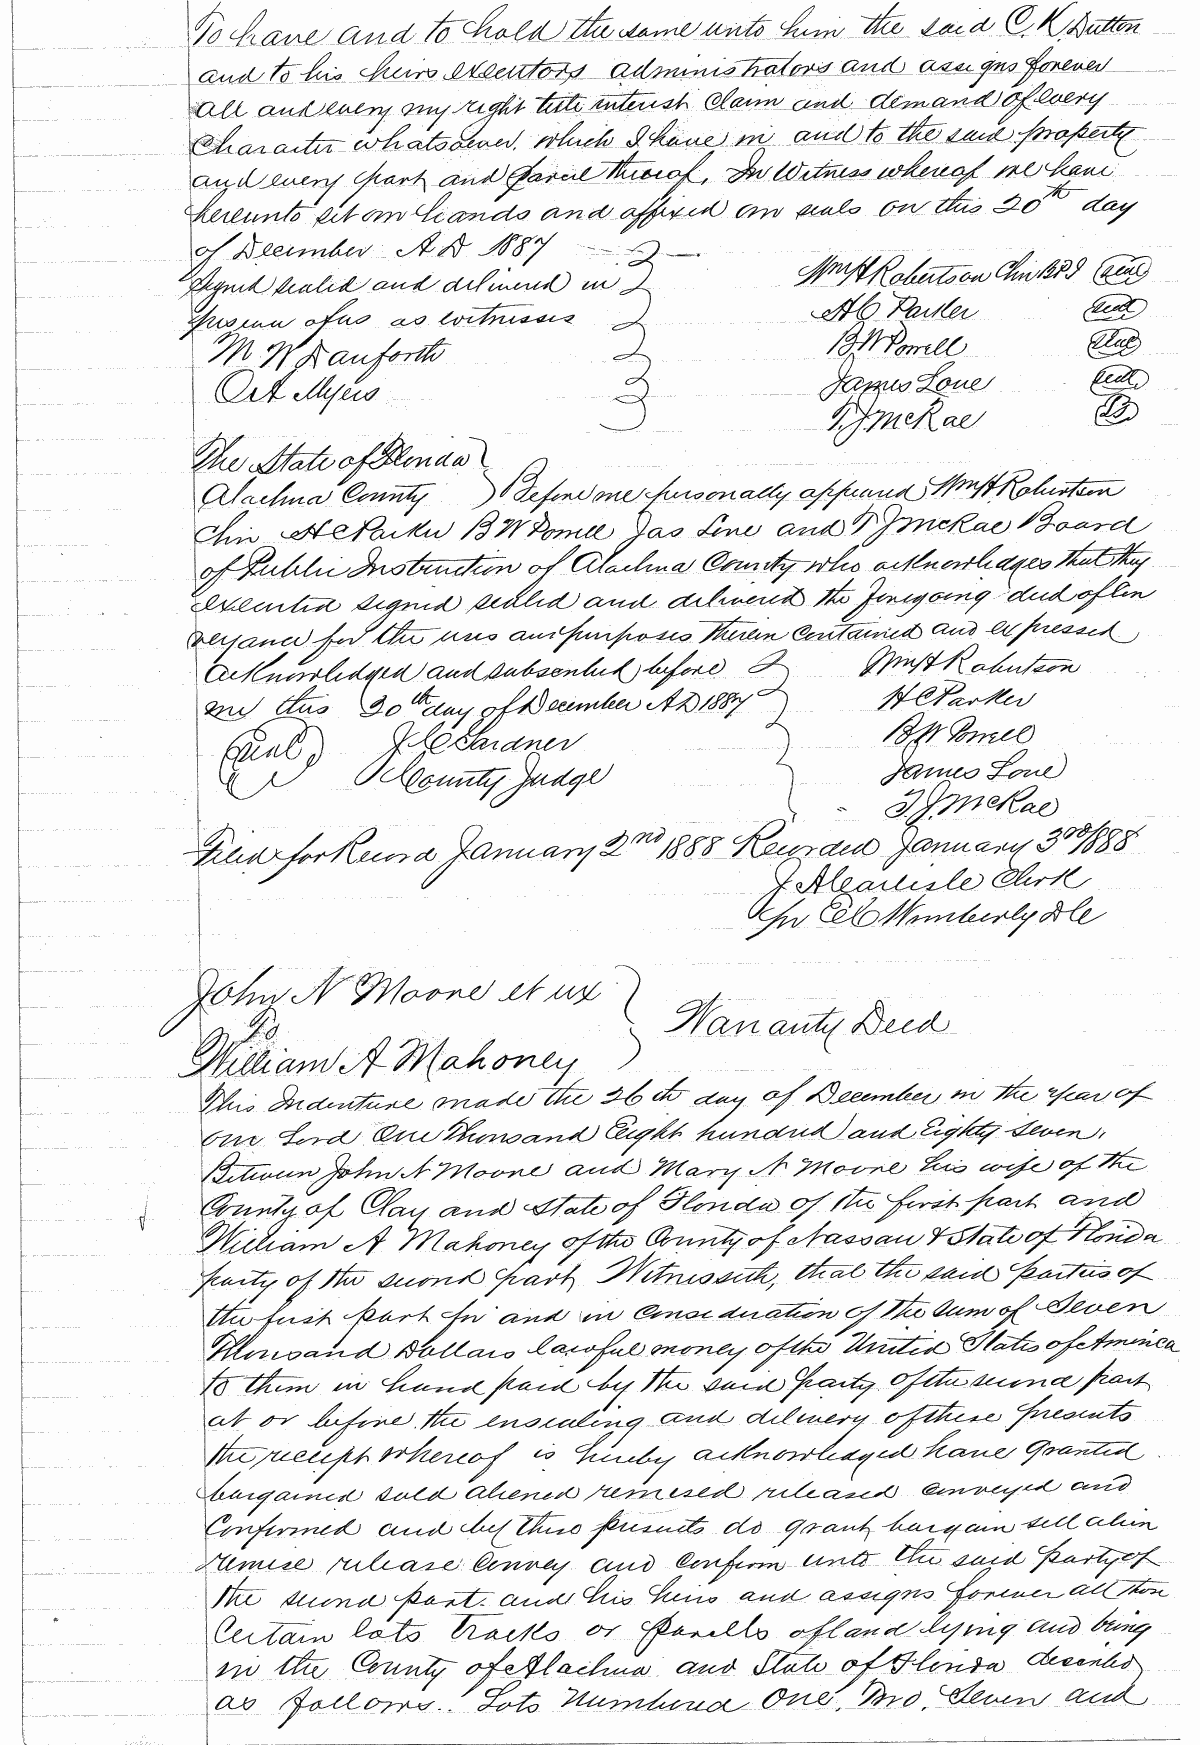 To have and to hold the same unto him the said C. K. Dutton
and to his heirs executors administrators and assigns forever
all and every my right title interest claim and demand of every
Character whatsoever, which I have in and to the said property
and every part and parcel thereof. In Witness whereof we have
hereunto set our hands and affixed our seals on this 20th day
of December A D 1887
Signed sealed and delivered in
presence of us as witnesses
M W Danforth
O A Myers
Wm H Robertson Chn B P I (seal)
H C Parker (seal)
B W Powell (seal)
James Lone (seal)
T J McRae (LS)
The State of Florida
Alachua County Before me personally appeared Wm H Robertson
Chn H C Parker B W Powell Jas Lone and T J McRae Board
of Public Instruction of Alachua County who acknowledges that they
executed signed sealed and delivered the foregoing deed of Con
veyance for the uses and purposes therein contained and expressed
acknowledged and subscribed before
me this 20th day of December A D 1887
(Seal) J C Gardner
County Judge
Wm H Robertson
H C Parker
B W Powell
James Lone
T. J. McRae
Filed for Record January 2nd 1888 Recorded January 3rd 1888
J A Carlisle Clerk
pr C C Wimberly D C
John N Moore et ux
To
William A Mahoney
Warranty Deed
This Indenture made the 26th day of December in the year of
our Lord One Thousand Eight hundred and Eighty Seven.
Between John N Moore and Mary N Moore his wife of the
County of Clay and State of Florida of the first part and
William A Mahoney of the County of Nassau & State of Florida
party of the second part Witnesseth, that the said parties of
the first part for and in consideration of the sum of Seven
Thousand Dollars lawful money of the United States of America
to them in hand paid by the said party of the second part
at or before the ensealing and delivery of these presents
the receipt whereof is hereby acknowledged have granted
bargained sold aliened remised released conveyed and
Confirmed and by these presents do grant bargain sell alien
remise release convey and confirm unto the said party of
the second part. and his heirs and assigns forever all those
Certain lots tracks or parcells of land lying and being
in the County of Alachua and State of Florida described
as follows.. Lots Numbered One, Two, Seven and